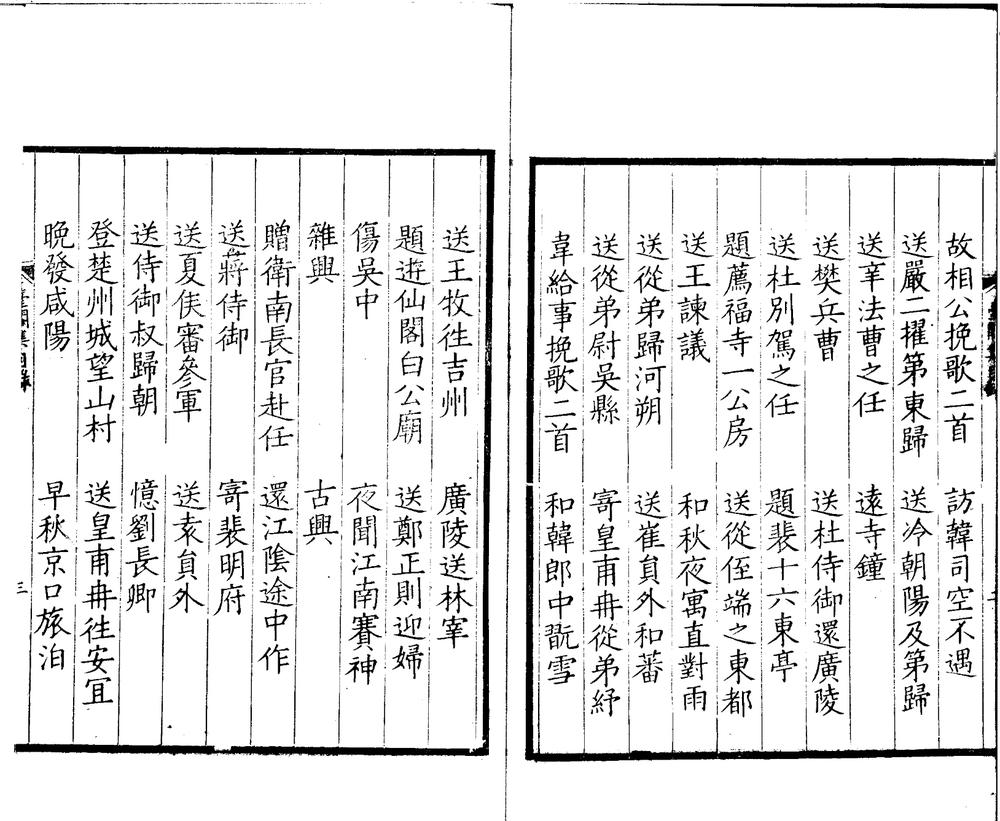 故相公挽歌二首 訪韓司空不遇
送嚴二擢第東歸 送冷朝陽及第歸
送辛法曹之任 遠寺鐘
送樊兵曹 送杜侍御還廣陵
送杜別駕之任 題裴十六東亭
題薦福寺一公房 送從侄端之東都
送王諫議 和秋夜寓直對雨
送從弟歸河朔 送崔員外和蕃
送從弟尉吳縣 寄皇甫冉從弟紓
韋給事挽歌二首 和韓郎中翫雪
送王牧徃吉州 廣陵送林宰
題遊仙閣白公廟 送鄭正則迎婦
傷吳中 夜聞江南賽神
雜興 古興
贈衛南長官赴任 還江陰途中作
送蔣侍御 寄裴明府
送夏侯審參軍 送袁員外
送侍御叔歸朝 憶劉長卿
登楚州城望山村 送皇甫冉徃安宜
晚發咸陽 早秋京口旅泊
三